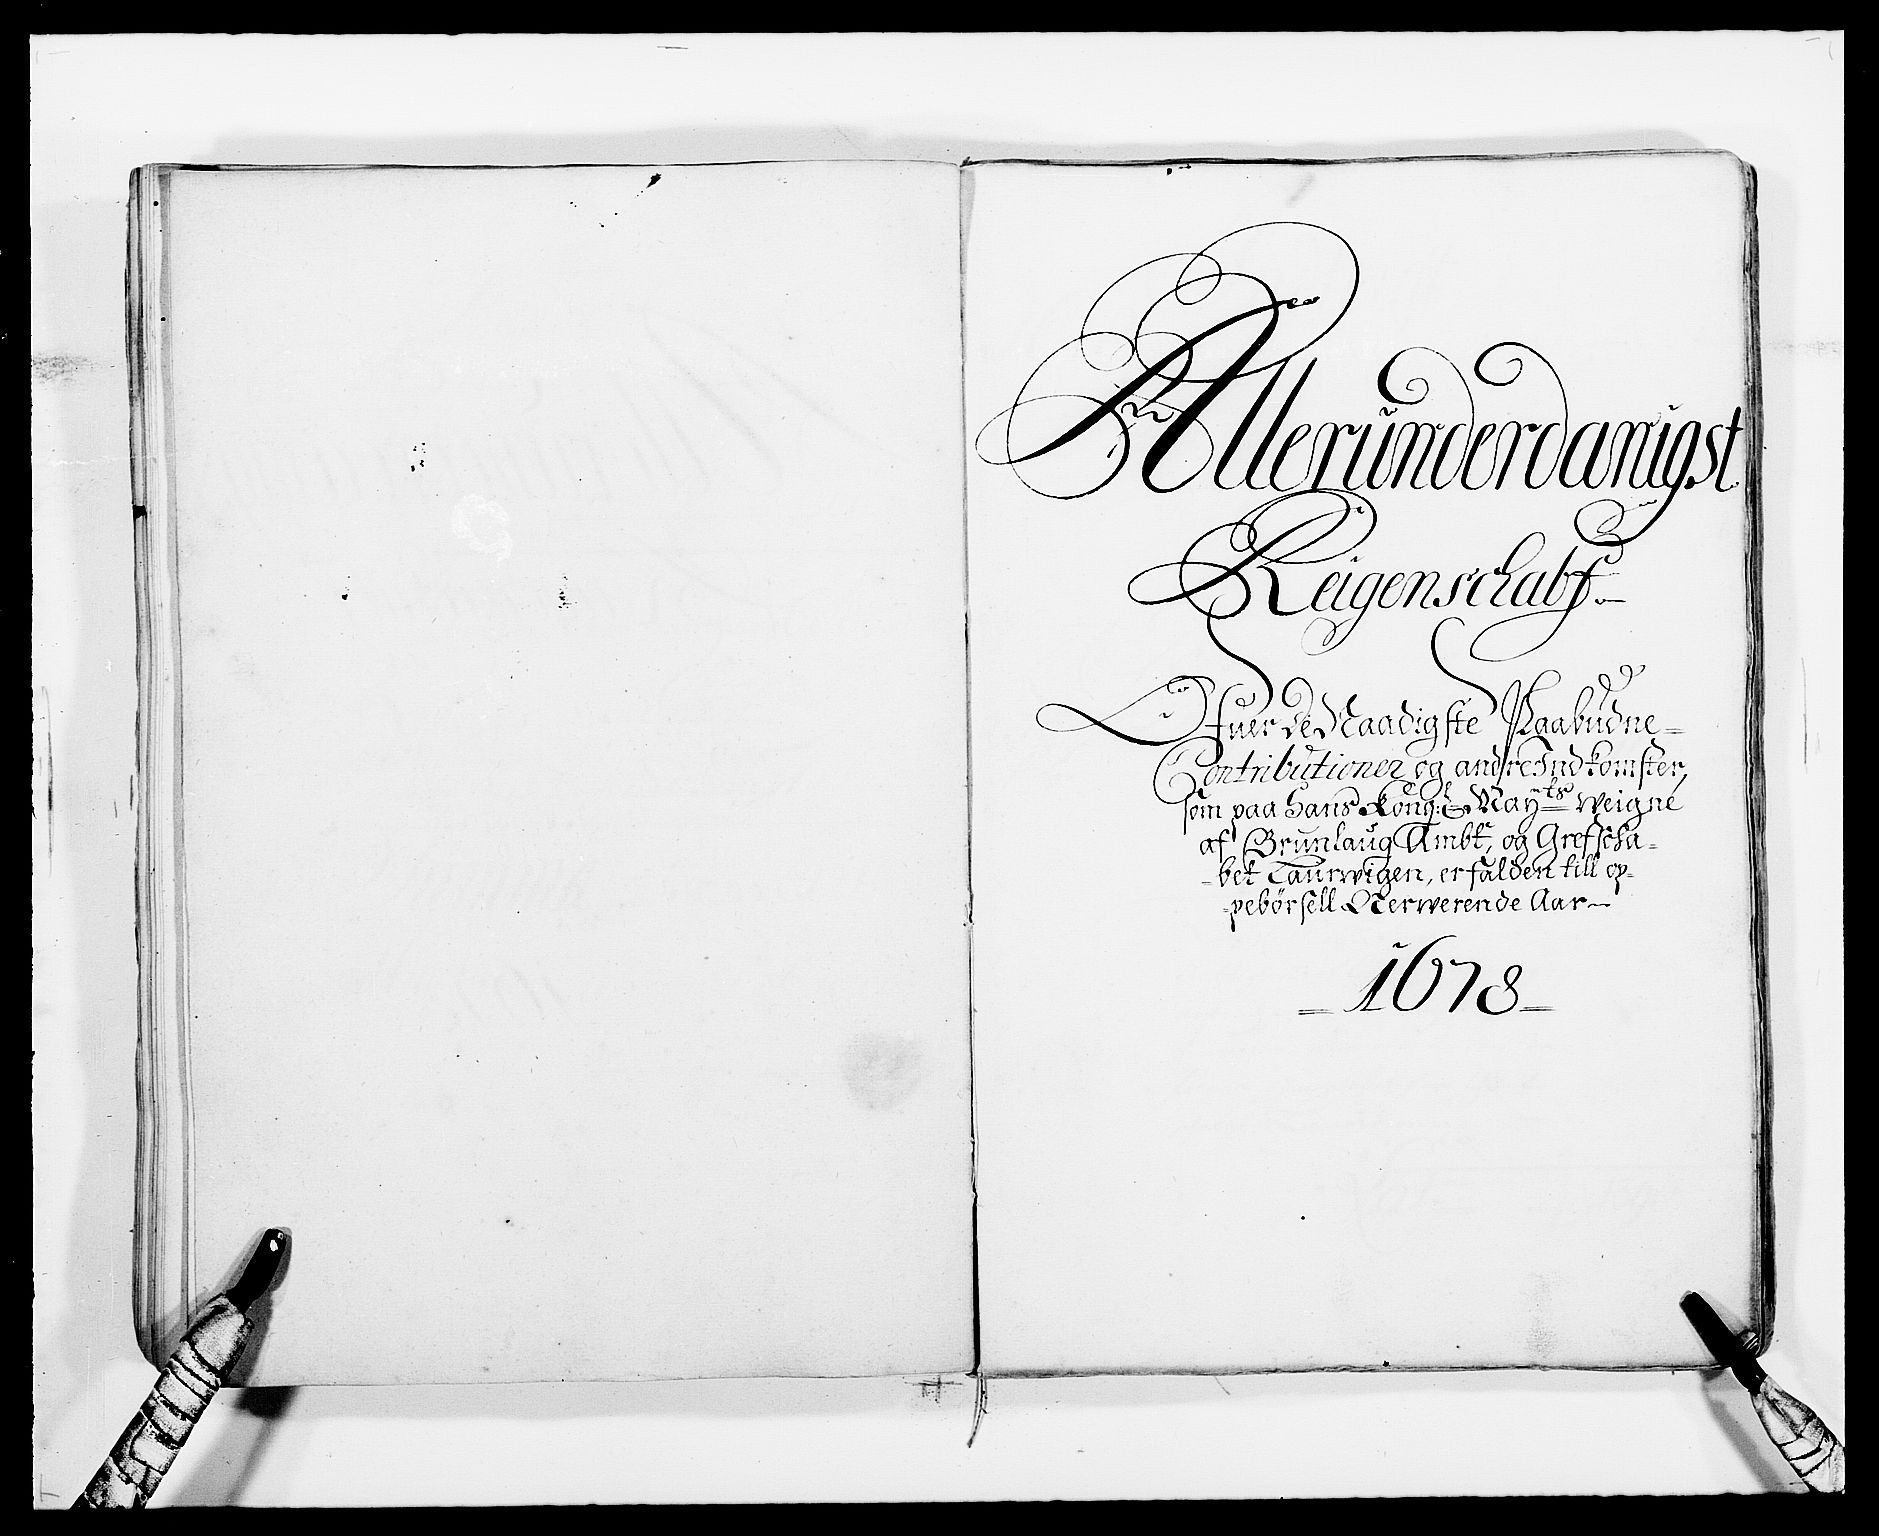 Allerunderdanigst
Reigenschabf
Ofuer de Naadigste Paabudne=
Contributioner og andre Indkomster,
som paa Hans Kong: Mayts weigne
af Brunlaug Ambt, og Grefscha=
=bet Laurwigen, er falden till op=
=pebörsell Nerwerende Aar
1678